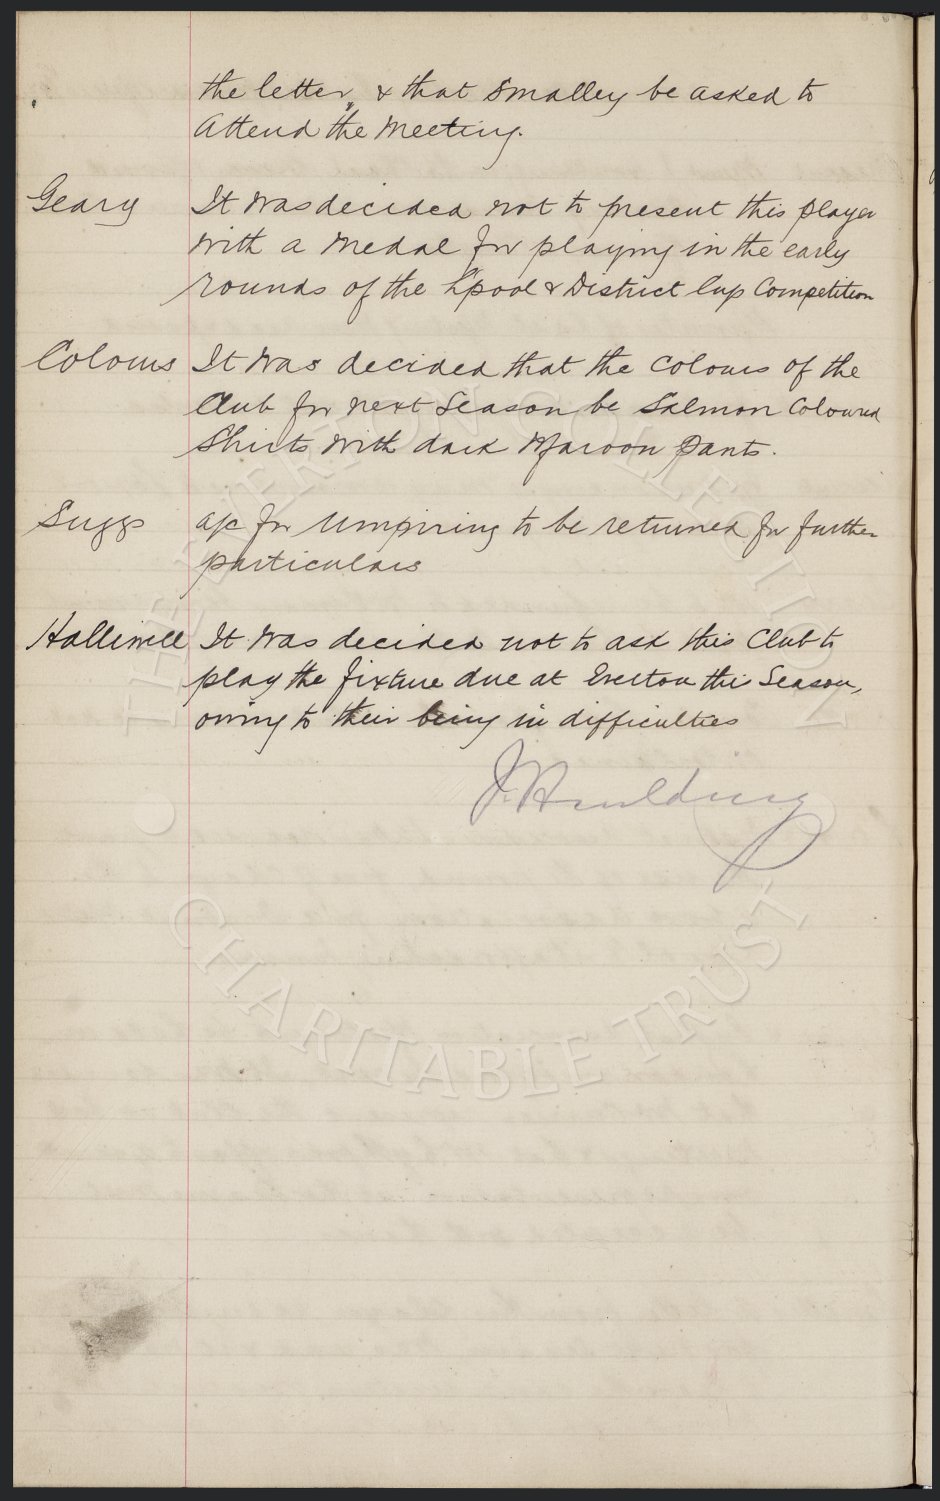 the letter, & that Smalley be asked to
attend the Meeting.
Geary It was decided not to present this player
with a Medal for playing in the early
rounds of the L'pool & District Cup Competition
Colours It was decided that the Colours of the
Club for next Season be Salmon Coloured
Shirts with dark Maroon Pants.
Suggs a/c for Umpiring to be returned for further
particulars
Halliwell It was decided not to ask this Club to
play the fixture due at Everton this Season,
owing to their being in difficulties
J. Houlding
THE EVERTON COLLECTION
CHARITABLE TRUST